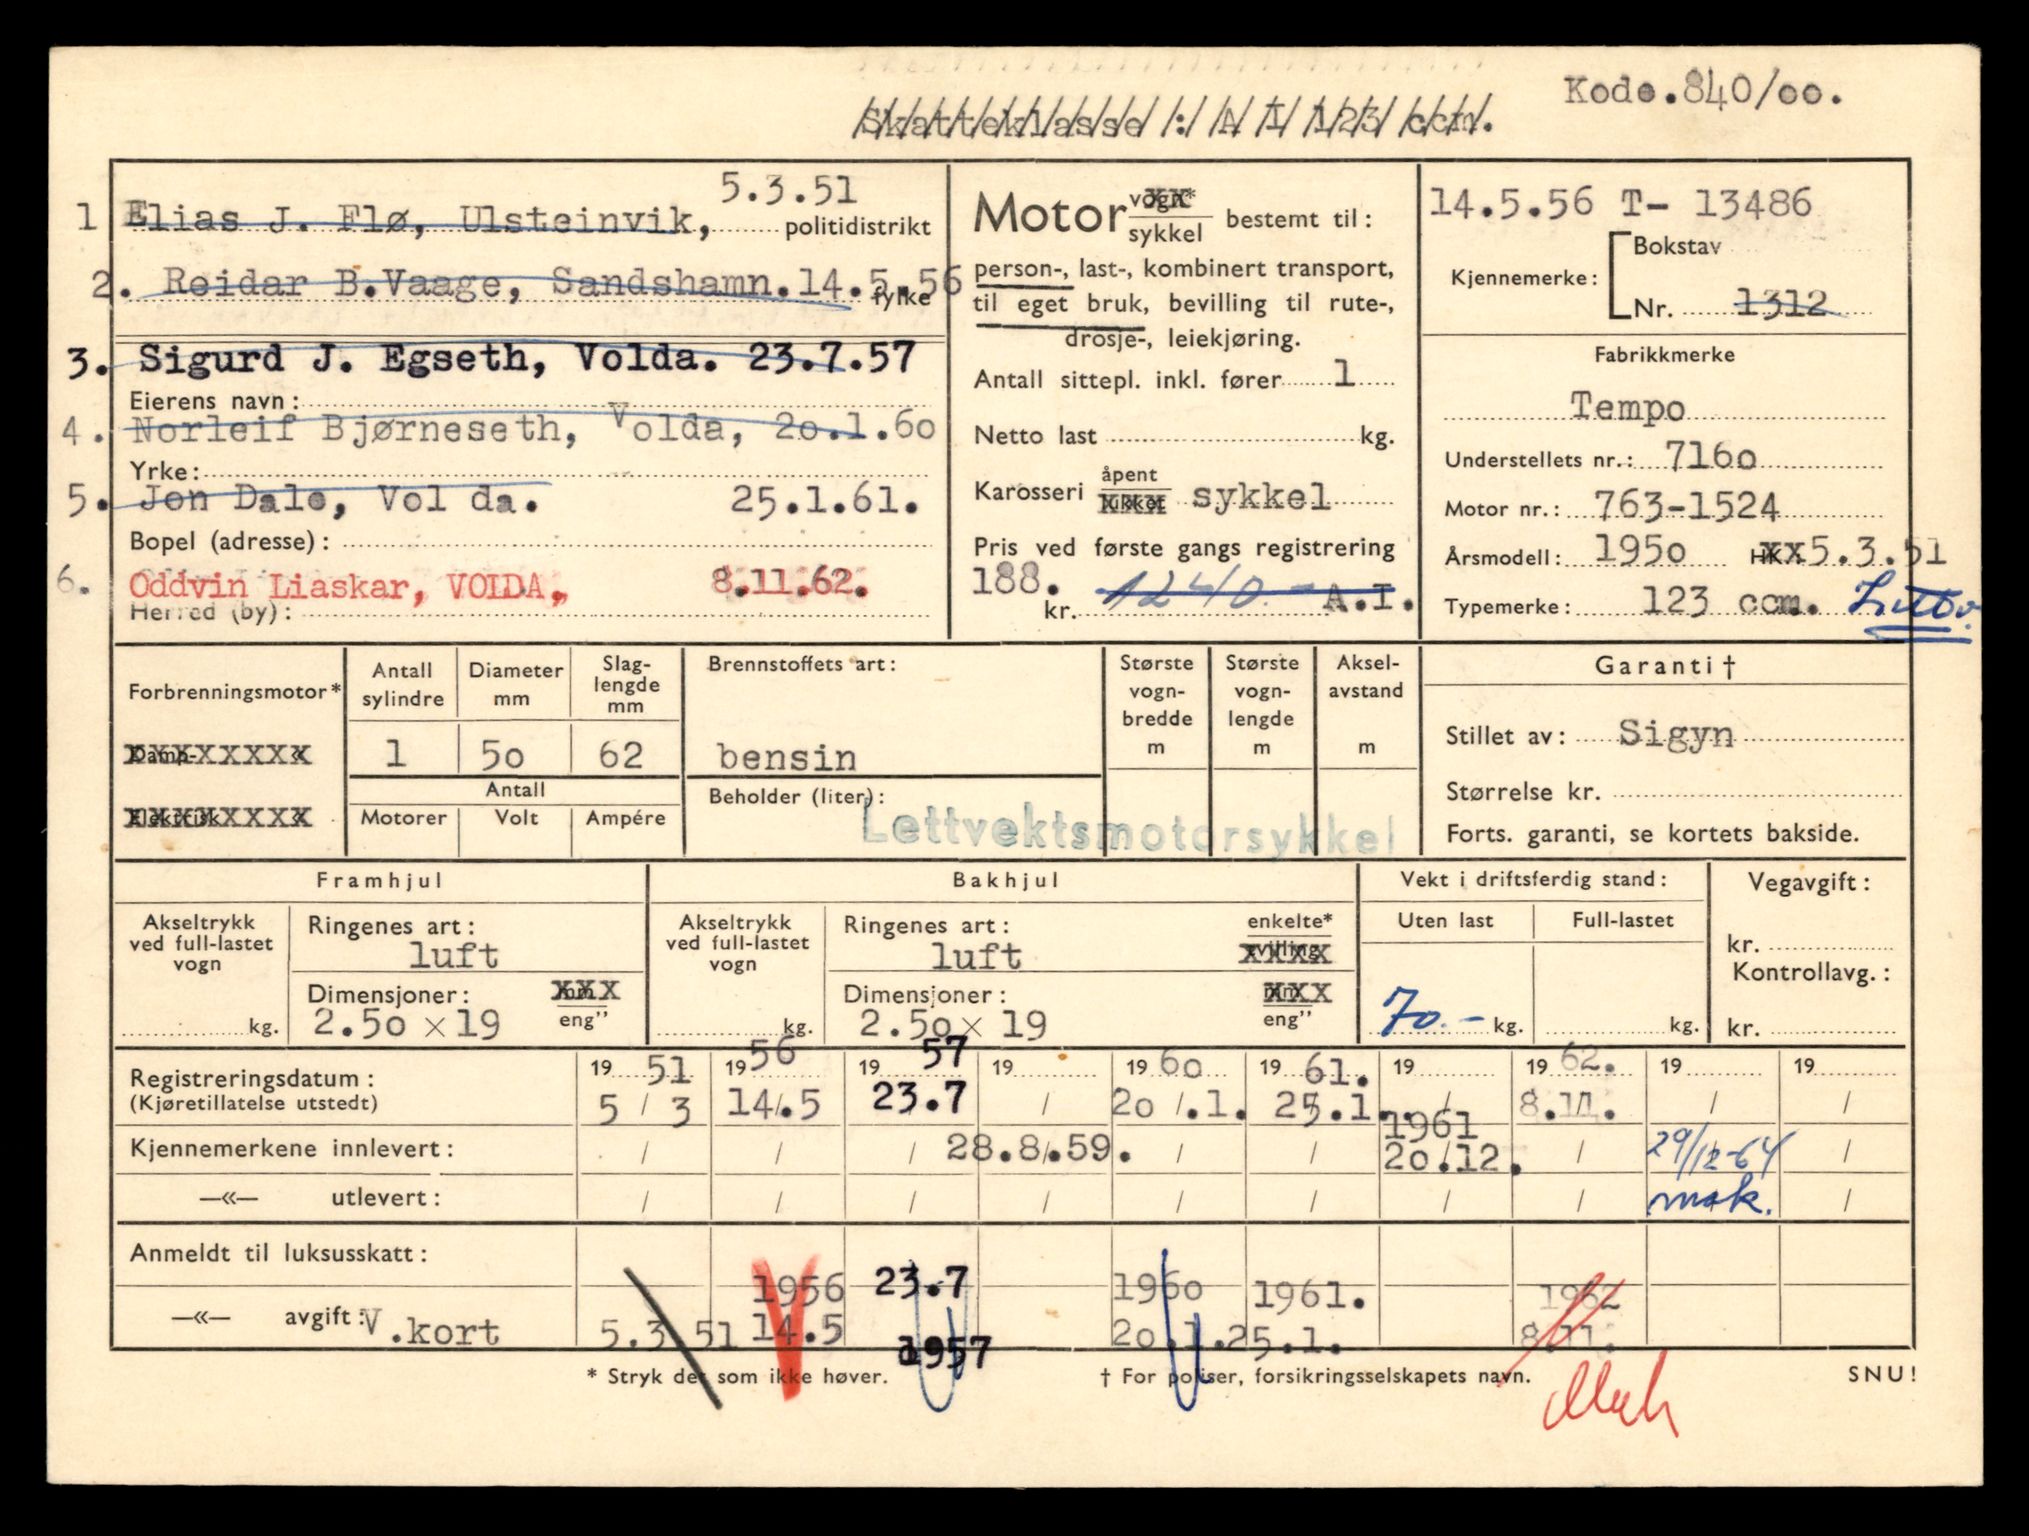 Kode.840/oo.
Skatteklasse : A I 123 ccm.
5.3.51
1 Elias J. Flø, Ulsteinvik, politidistrikt
2. Reidar B.Vaage, Sandshamn.14.5.56 fylke
3. Sigurd J. Egseth, Volda. 23.7.57
Eierens navn:
4. Norleif Bjørneseth, Volda, 2o.1.6o
Yrke:
5. Jon Dale, Vol da. 25.1.61.
Bopel (adresse):
6. Oddvin Liaskar, VOLDA, 8.11.62.
Herred (by):
Motor vogn* sykkel bestemt til:
person-, last-, kombinert transport,
til eget bruk, bevilling til rute-,
drosje-, leiekjøring.
Antall sittepl. inkl. fører 1
Netto last kg.
Karosseri åpent lukket sykkel
Pris ved første gangs registrering
188. kr. 1240.- A.I.
14.5.56 T- 13486
Kjennemerke: Bokstav
Nr. 1312
Fabrikkmerke
Tempo
Understellets nr.: 716o
Motor nr.: 763-1524
Årsmodell: 195o HK. xx5.3.51
Typemerke: 123 ccm.
Forbrenningsmotor*
Damp- «
Elektrisk «
Antall sylindre
Diameter mm
Slag-lengde mm
1 5o 62
Antall
Motorer Volt Ampére
Brennstoffets art:
bensin
Beholder (liter):
Lettvektsmotorsykkel
Største vogn-bredde m
Største vogn-lengde m
Aksel-avstand m
Garanti †
Stillet av: Sigyn
Størrelse kr.
Forts. garanti, se kortets bakside.
Framhjul
Akseltrykk ved full-lastet vogn
kg.
Ringenes art:
luft
Dimensjoner: mm eng”
2.5o x 19
Bakhjul
Akseltrykk ved full-lastet vogn
kg.
Ringenes art: enkelte* tvilling
luft
Dimensjoner: mm eng”
2.5o x 19
Vekt i driftsferdig stand:
Uten last Full-lastet
70.- kg. kg.
Vegavgift:
kr.
Kontrollavg.:
kr.
Registreringsdatum: 19 51 19 56 19 57 19 19 6o 19 61. 19 19 62. 19 19
(Kjøretillatelse utstedt) 5 / 3 14/.5 23.7 / 2o/.1. 25.1. / 8.11. / /
Kjennemerkene innlevert: / / / 28.8/.59. / / 1961 2o.12. / 29/12-64 /
—«— utlevert: / / / / / / / / mak. /
Anmeldt til luksusskatt:
—«— avgift: V.kort 5.3.51 1956 14.5 23.7 1957 196o 2o.1. 1961. 25.1. 1962 8.11.
* Stryk det som ikke høver.
† For poliser, forsikringsselskapets navn.
SNU!